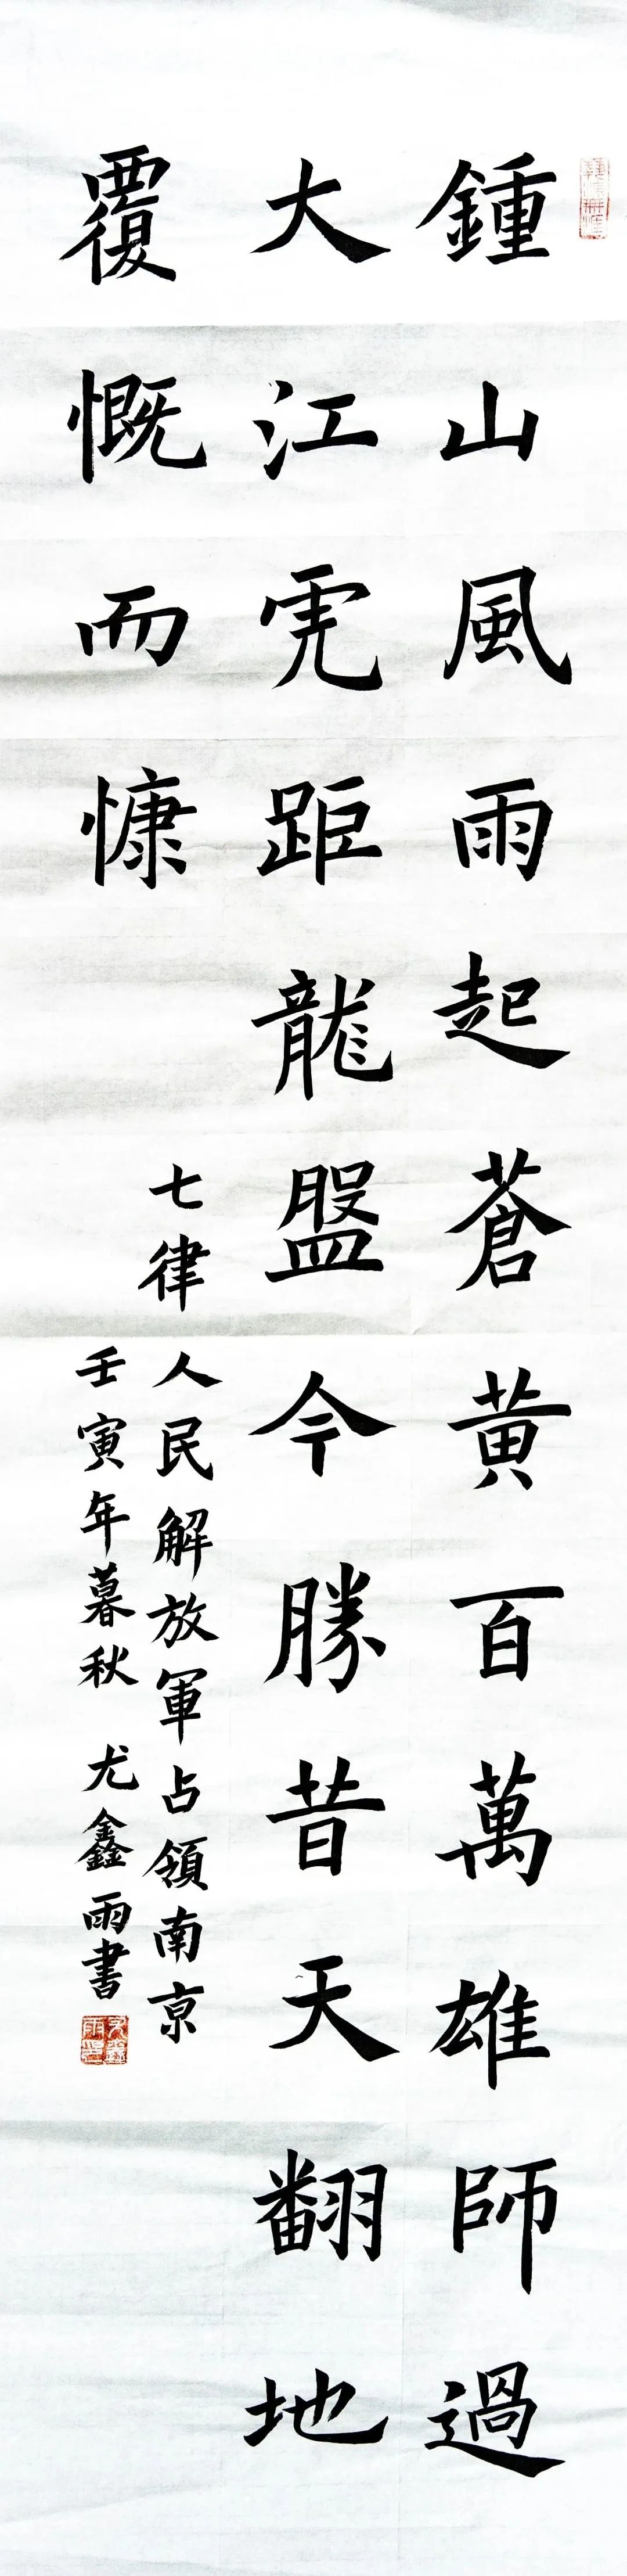 鍾山風雨起蒼黄百萬雄師過
大江虎距龍盤今勝昔天翻地
覆慨而慷
七律 人民解放軍占領南京
壬寅年暮秋 尤鑫雨書
尤鑫雨印